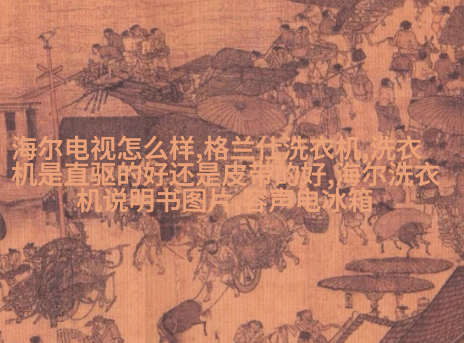 海尔电视怎么样,格兰仕洗衣机,洗衣
机是直驱的好还是皮带的好,海尔洗衣
机说明书图片,容声电冰箱